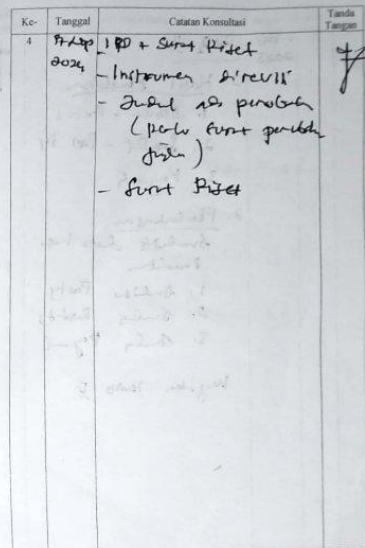 Ke- Tanggal Catatan Konsultasi Tanda Tangan
4 Sep IPD + Surat Riset
2024 - Instrumen direvisi
- Judul ada perubahan
(perlu surat
judul)
- Surat Riset